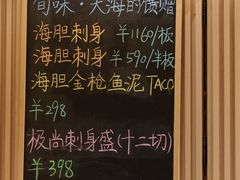 旬味·大海的馈赠
海胆刺身 ¥1160/板
海胆刺身 ¥590/半板
海胆金枪鱼泥TACO
¥298
极尚刺身盛(十二切)
¥398